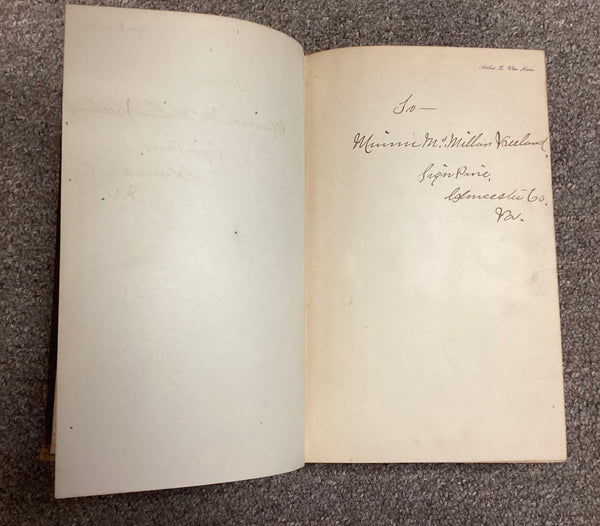 Arthur L. Van Name
To —
Minnie Mc Millan Vreeland,
Sign Pine,
Gloucester Co.
Va.